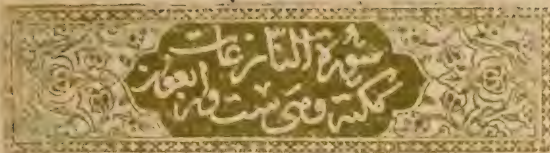 سورة النازعات
مكية وهى ست واربعون